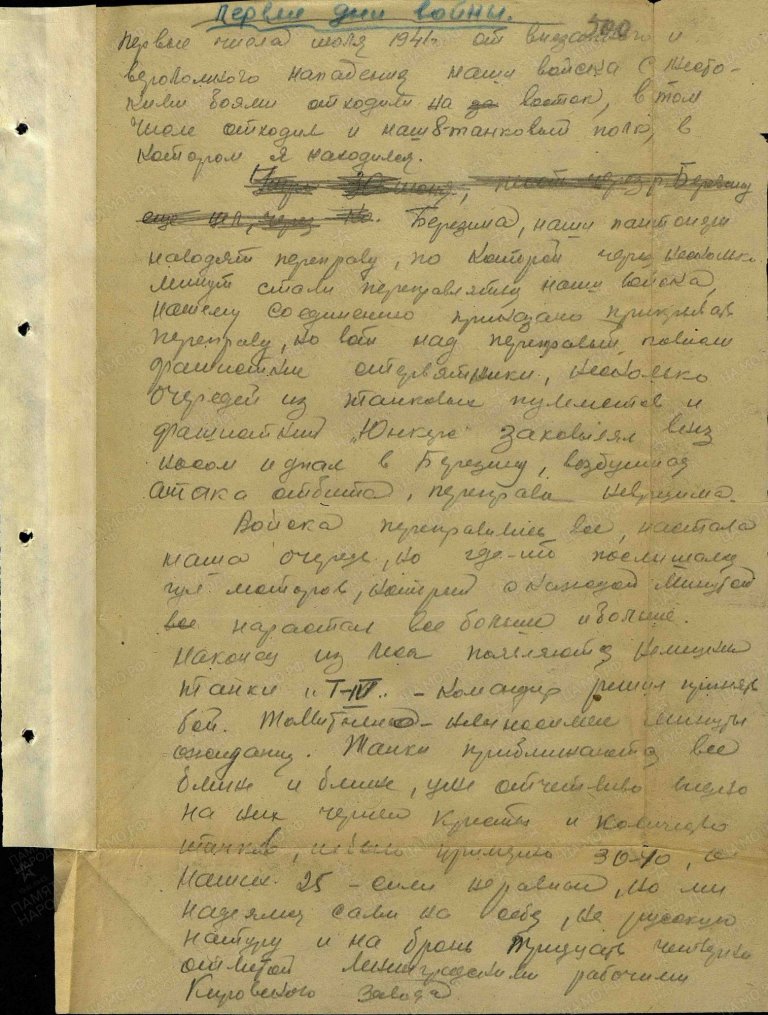 Первые дни войны.
500
Первые числа июля 1941г. от внезапного и
вероломного нападения наши войска с жесто-
кими боями отходили на за восток, в том
числе отходил и наш 8-танковый полк, в
котором я находился.
30 июня, мост через р. Березину
еще цел, через Березина, наши пантонеры
наводят переправу, по которой через несколько
минут стали переправляться наши войска,
нашему соединению приказано прикрывать
переправу, но вот над переправой повисли
фашисткие стервятники, несколько
очередей из танковых пулеметов и
фашисткий "Юнкерс" заковылял вниз
носом и упал в Березину, воздушная
атака отбита, переправа невредима.
Войска переправились все, настала
наша очередь, но где-то послышался
гул моторов, который с каждой минутой
все нарастал все больше и больше.
Наконец из леса появляются немецкие
танки "Т-IV" - командир решил принять
бой. Томительные - невыносимые минуты
ожидания. Танки приближаются все
ближе и ближе, уже отчетливо видно
на них черные кресты и количество
танков, их было примерно 30-40, а
наших 25 - силы неравные, но мы
надеялись сами на себя, на русскую
натуру и на бронь тридцать четверки
отлитой Ленинградскими рабочими
Кировского завода